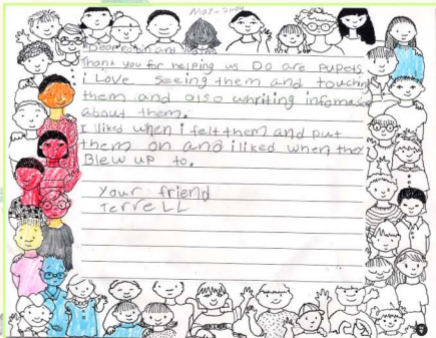 Dear        and
Thank you for helping us Do are pupets
i Love Seeing them and touching
them and also whriting
about them.
I liked when i felt them and put
them on and i liked when they
Blew up to.
Your friend
TerreLL